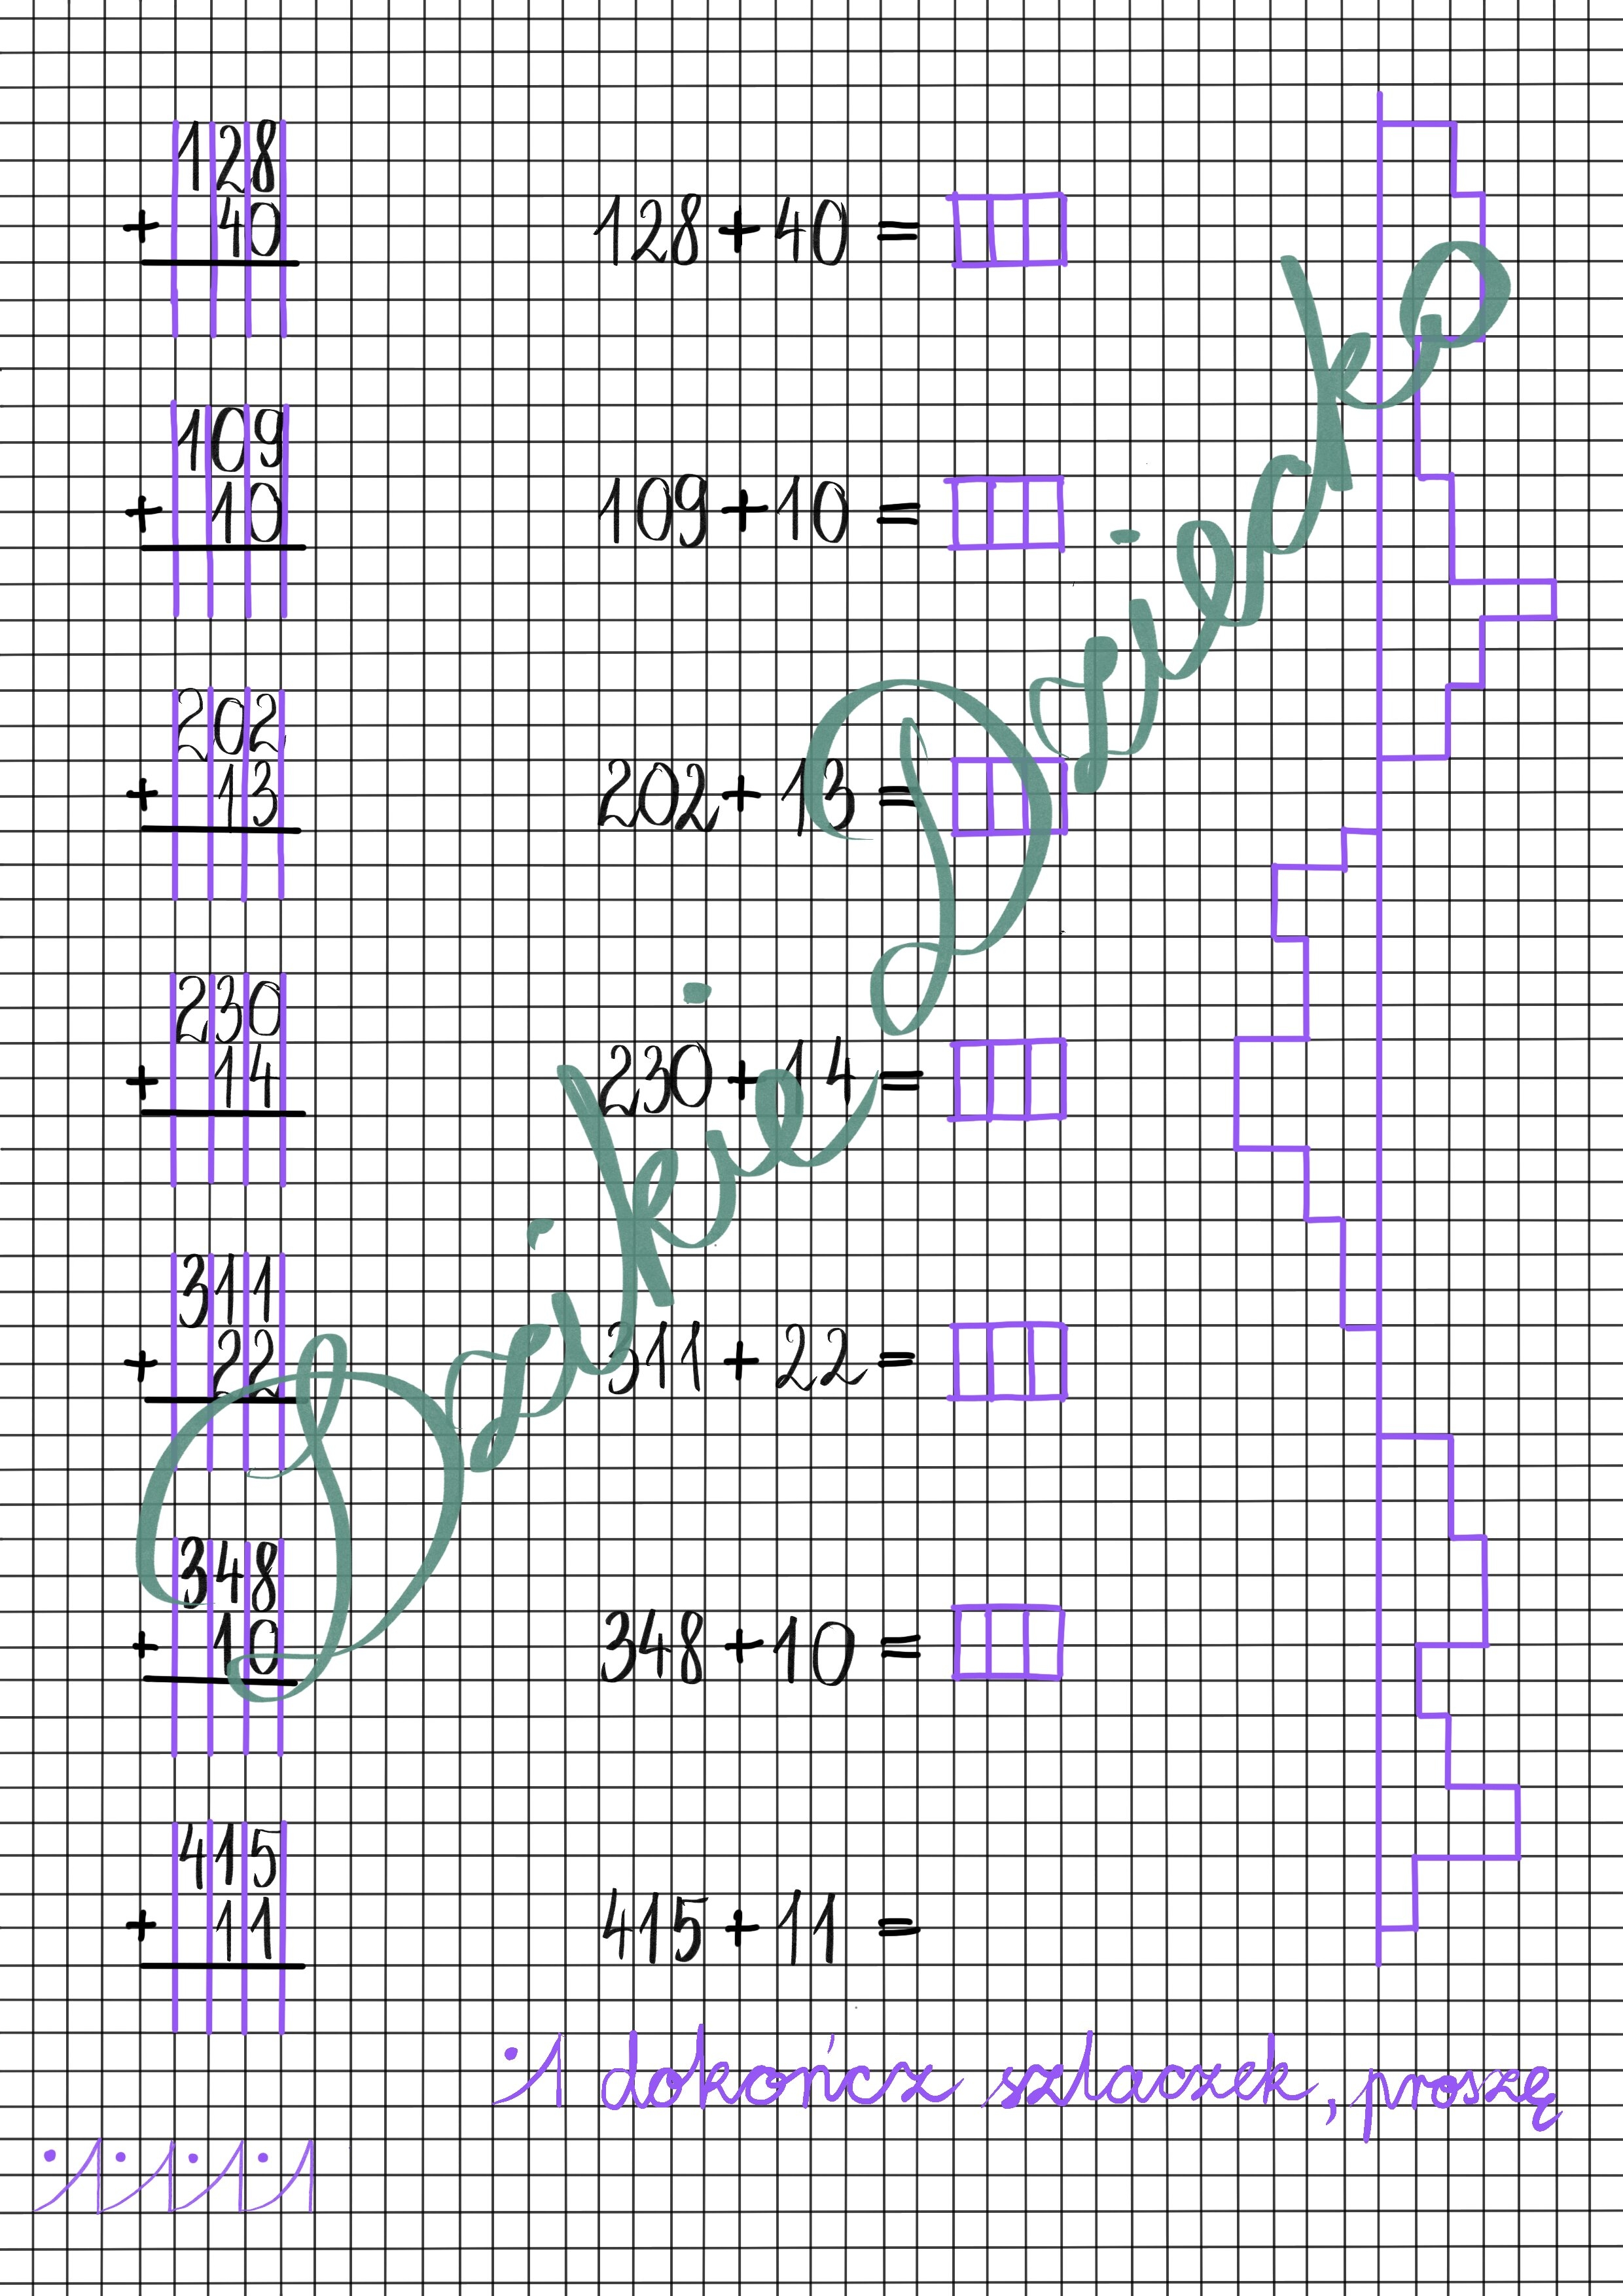 128
+ 40
128 + 40 =
109
+ 10
109 + 10 =
202
+ 13
202 + 13 =
230
+ 14
230 + 14 =
311
+ 22
311 + 22 =
348
+ 10
348 + 10 =
415
+ 11
415 + 11 =
Dzikie Dziecko
·1 dokończ szlaczek, proszę
·1·1·1·1